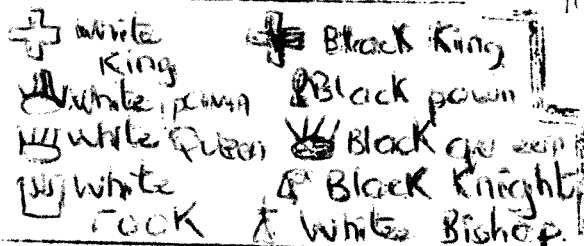 White King
Black King
White pown
Black pown
White Queen
Black queen
White rook
Black Knight
White Bishop.